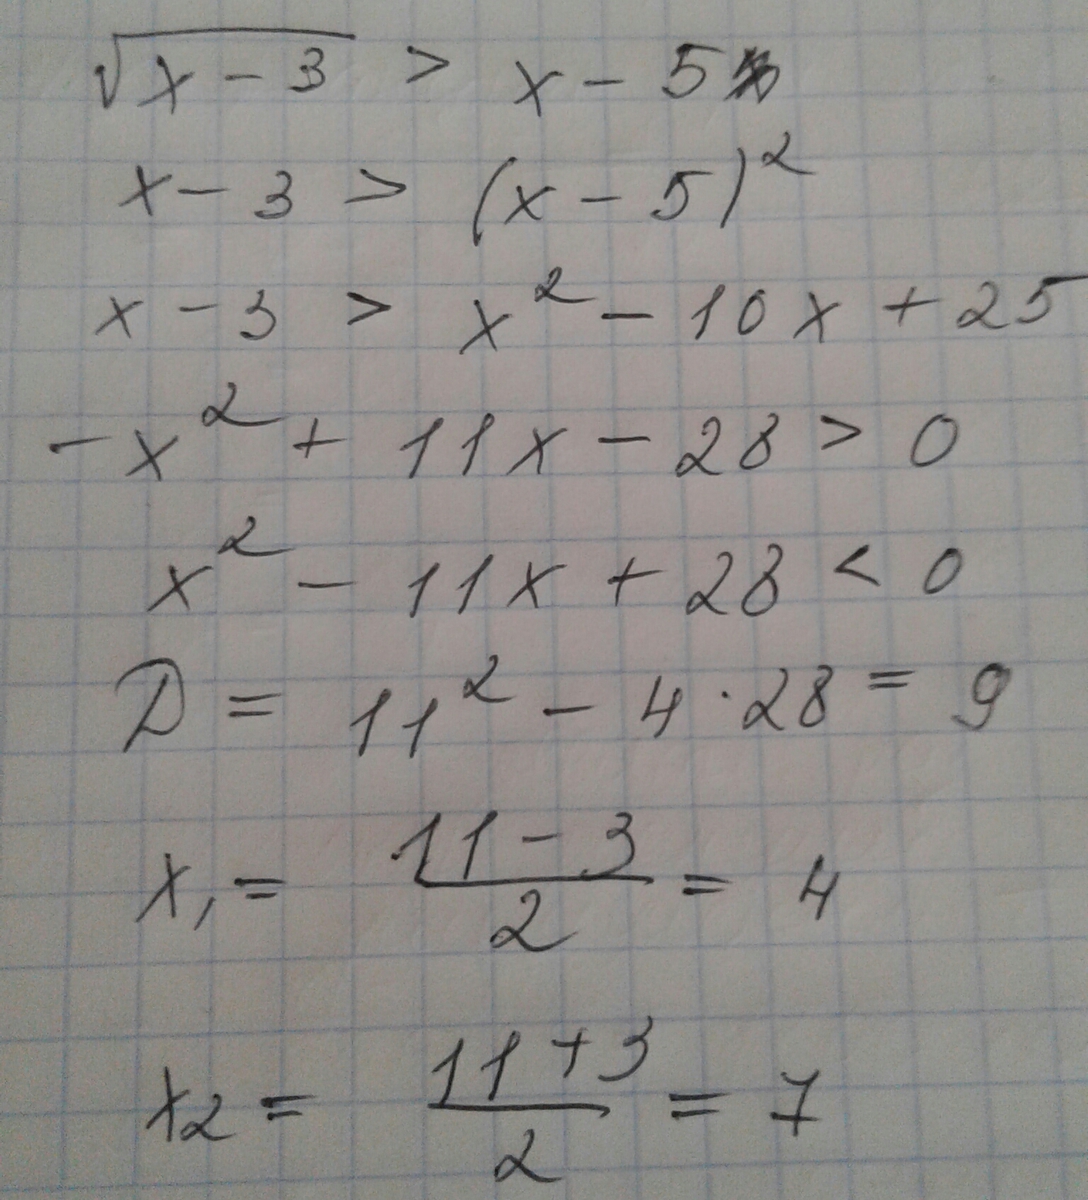 √x - 3 > x - 5
x - 3 > (x - 5)²
x - 3 > x² - 10x + 25
-x² + 11x - 28 > 0
x² - 11x + 28 < 0
D = 11² - 4 · 28 = 9
x₁ = (11 - 3)/2 = 4
x₂ = (11 + 3)/2 = 7